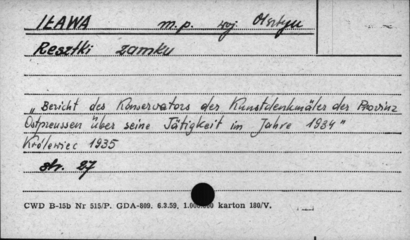 IŁAWA m.p. woj. Olsztyn
Resztki zamku
„Bericht des Konservators der Kunstdenkmäler der Provinz
Ostpreussen über seine Tätigkeit im Jahre 1934"
Królewiec 1935
str. 27
CWD B-15b Nr 515/P. GDA-809. 6.3.59, karton 180/V.